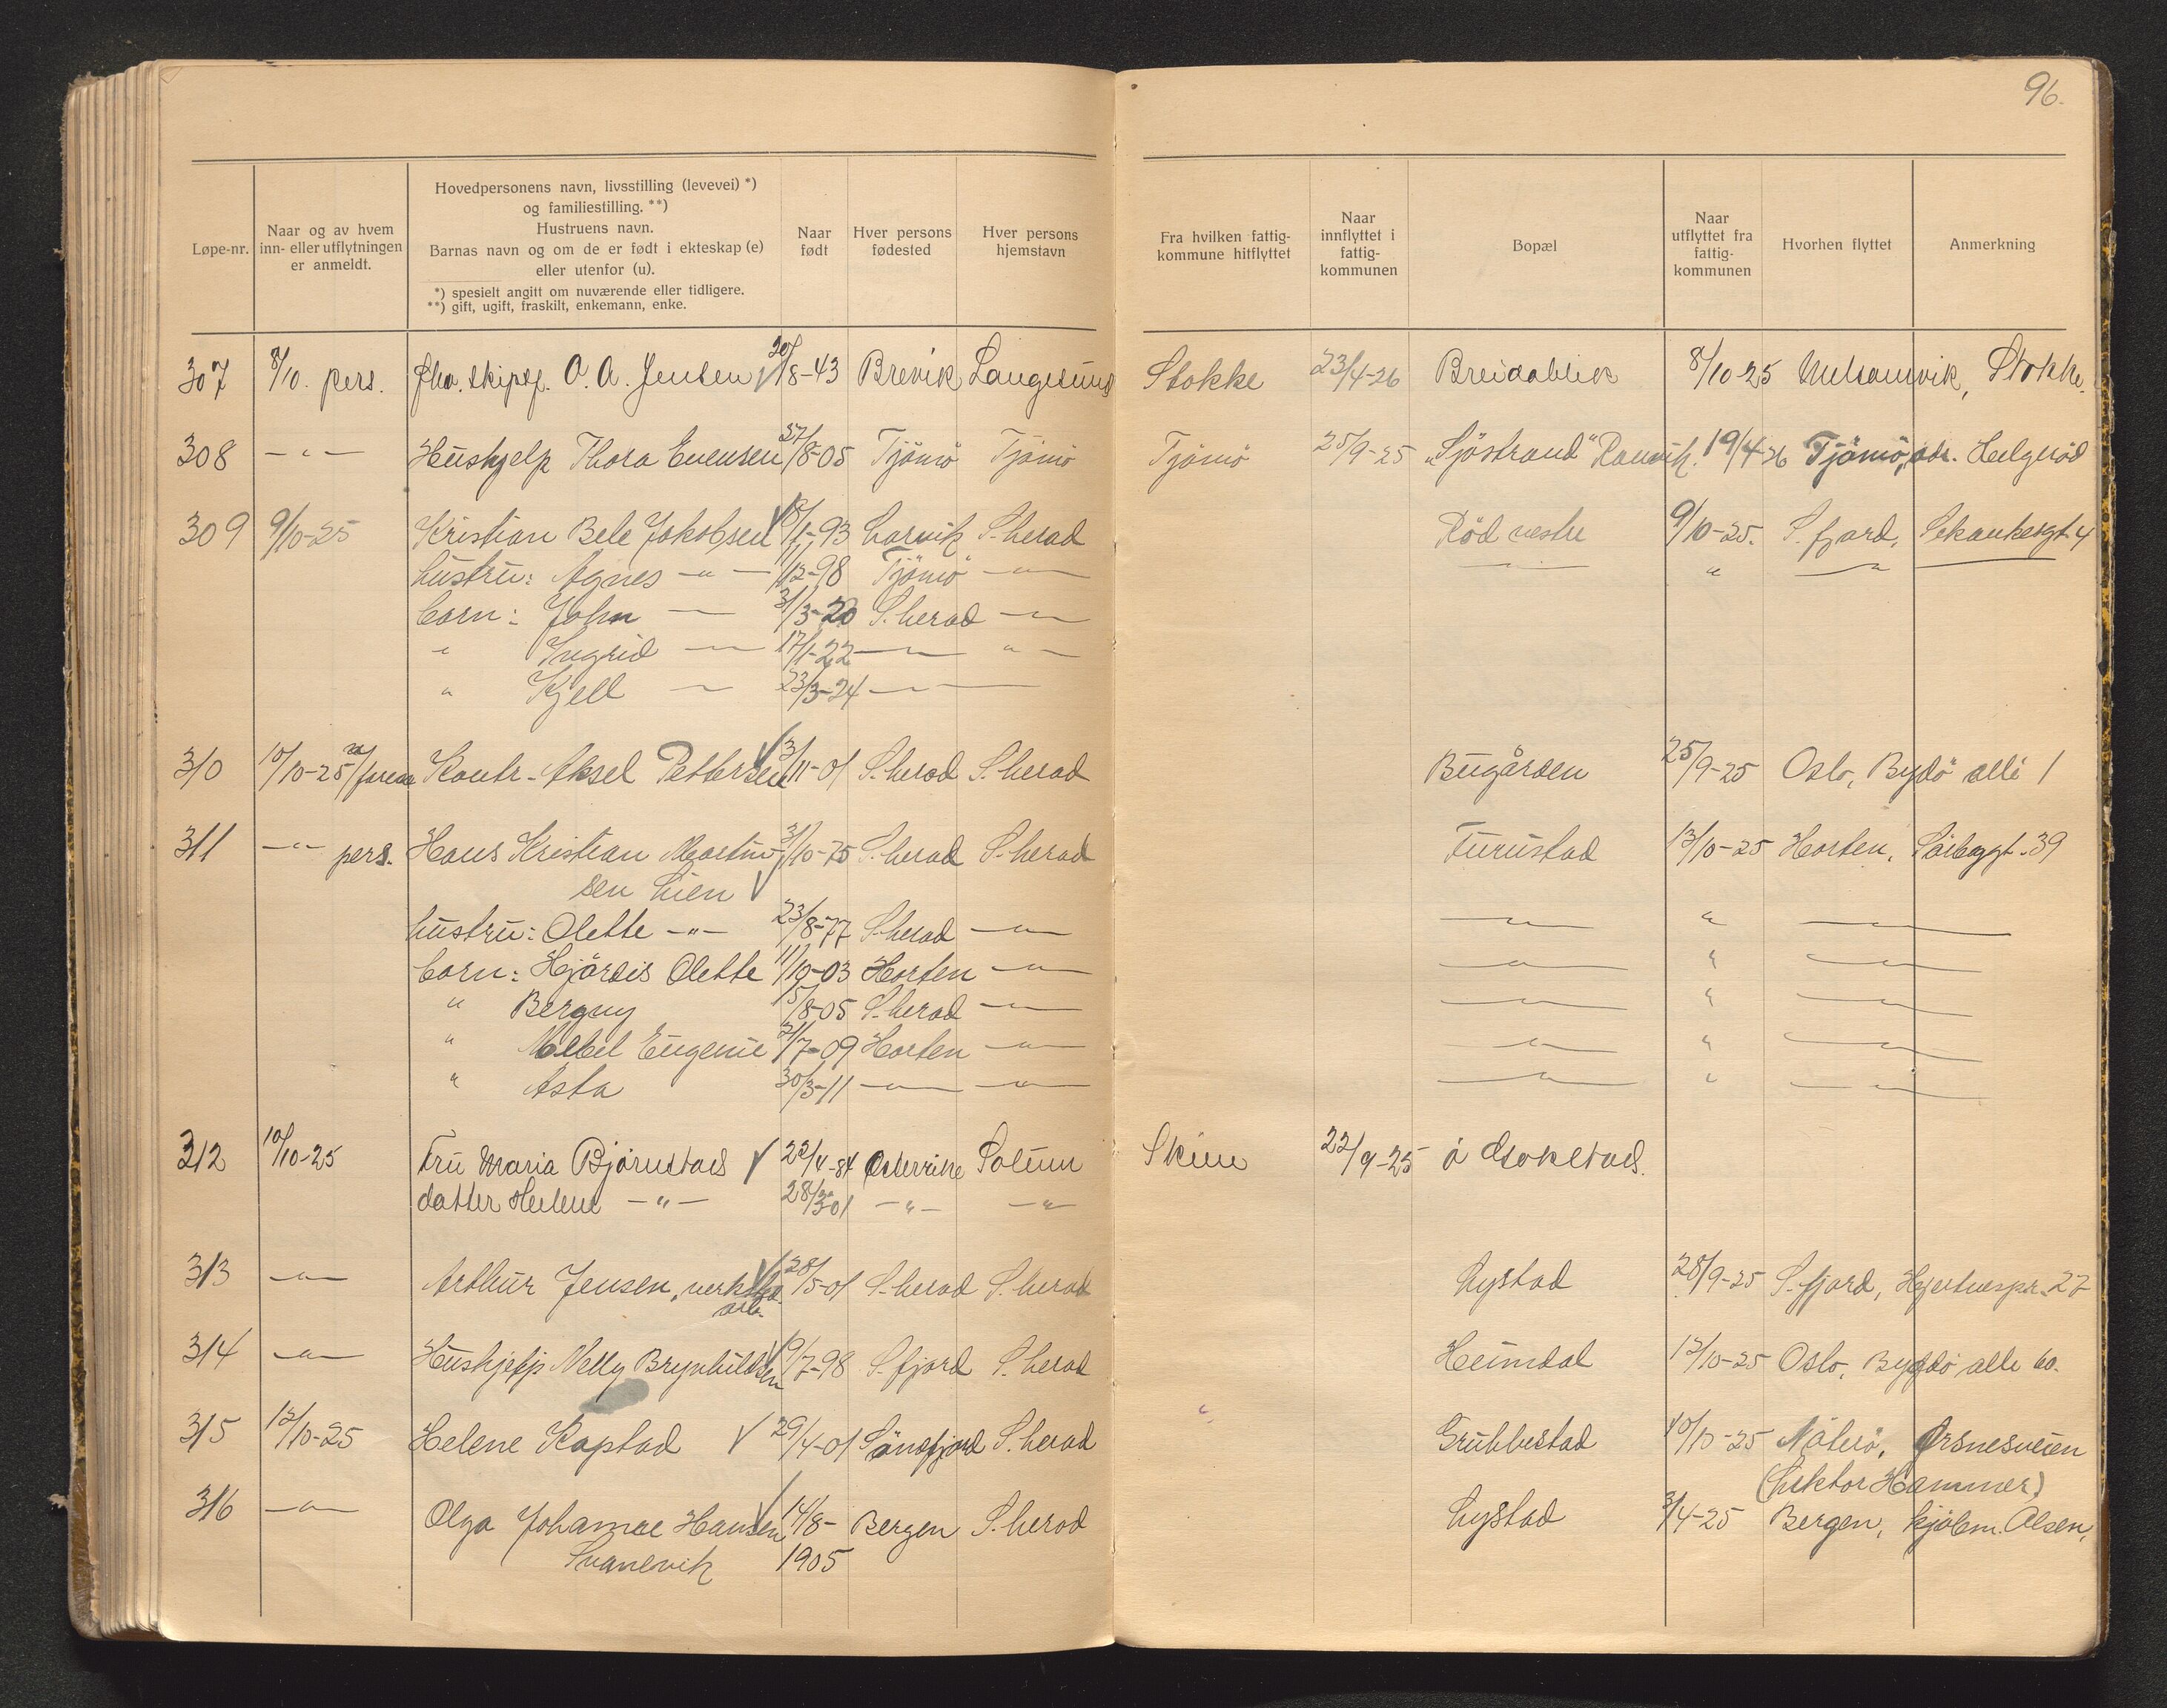 96.
Løpe-nr.
Naar og av hvem
inn- eller utflytningen
er anmeldt.
Hovedpersonens navn, livsstilling (levevei) *)
og familiestilling. **)
Hustruens navn.
Barnas navn og om de er født i ekteskap (e)
eller utenfor (u).
*) spesielt angitt om nuværende eller tidligere.
**) gift, ugift, fraskilt, enkemann, enke.
Naar
født
Hver persons
fødested
Hver persons
hjemstavn
Fra hvilken fattig-
kommune hitflyttet
Naar
innflyttet i
fattig-
kommunen
Bopæl
Naar
utflyttet fra
fattig-
kommunen
Hvorhen flyttet
Anmerkning
307 8/10. pers. skipsf. O. A. Jensen 20/8-43 Brevik Langesund Stokke 23/4-26 Breidablik 8/10-25 Melsomvik, Stokke.
308 -"- Hushjelp Thora Evensen 27/8-05 Tjömö Tjömö Tjömö 25/9-25 "Sjöstrand" Ranvik. 19/4-26 Tjömö, adr. Helgeröd
309 9/10-25 Kristian Bele Jakobsen /1-93 Larvik S.herad Röd vestre 9/10-25. S.fjord,
hustru: Agnes -"- 11/12-98 Tjömö -"- " -"-
barn: John - 31/3-20 S.herad -"-
" Ingrid -"- 17/1-22 -"- -"-
" Kjell - 23/3-24 -"-
310 10/10-25 Kontr. Aksel Pettersen 3/11-01 S.herad S.herad Bugården 25/9-25 Oslo, Bydö allé 1
311 -"- pers. Hans Kristian Martin- 31/10-75 S.herad S.herad Furustad 13/10-25 Horten, 39
sen Lien
hustru: Olette -"- 23/8-77 S.herad -"- -"- " -"-
barn: Hjördis Olette 11/10-03 Horten -"- -"- " -"-
" Bergny 15/8-05 S.herad -"- -"- " -"-
" Eugenie 21/7-09 Horten -"- -"- " -"-
" Asta 30/3-11 -"- -"- -"- " -"-
312 10/10-25 Fru Maria Björnstad 22/4-84 Österrike Solum Skien 22/9-25
datter Helene -"- 28/ 01 -"- -"-
313 -"- Arthur Jensen, verksted- 28/5-01 S.herad S.herad Lystad 28/9-25 S.fjord, Hjertnespr. 27
arb.
314 -"- Hushjelp Nelly Brynhildsen 9/7-98 S.fjord S.herad Heimdal 12/10-25 Oslo, Bygdö alle 60.
315 12/10-25 Helene Kapstad 29/4-01 S.herad Grubbestad 10/10-25 Nöterö, Örsnesveien
(Lektor Hammer)
316 -"- Olga Johanne Hansen 14/8- Bergen S.herad Lystad 3/4-25 Bergen, kjöbm. Olsen,
Svanevik 1905